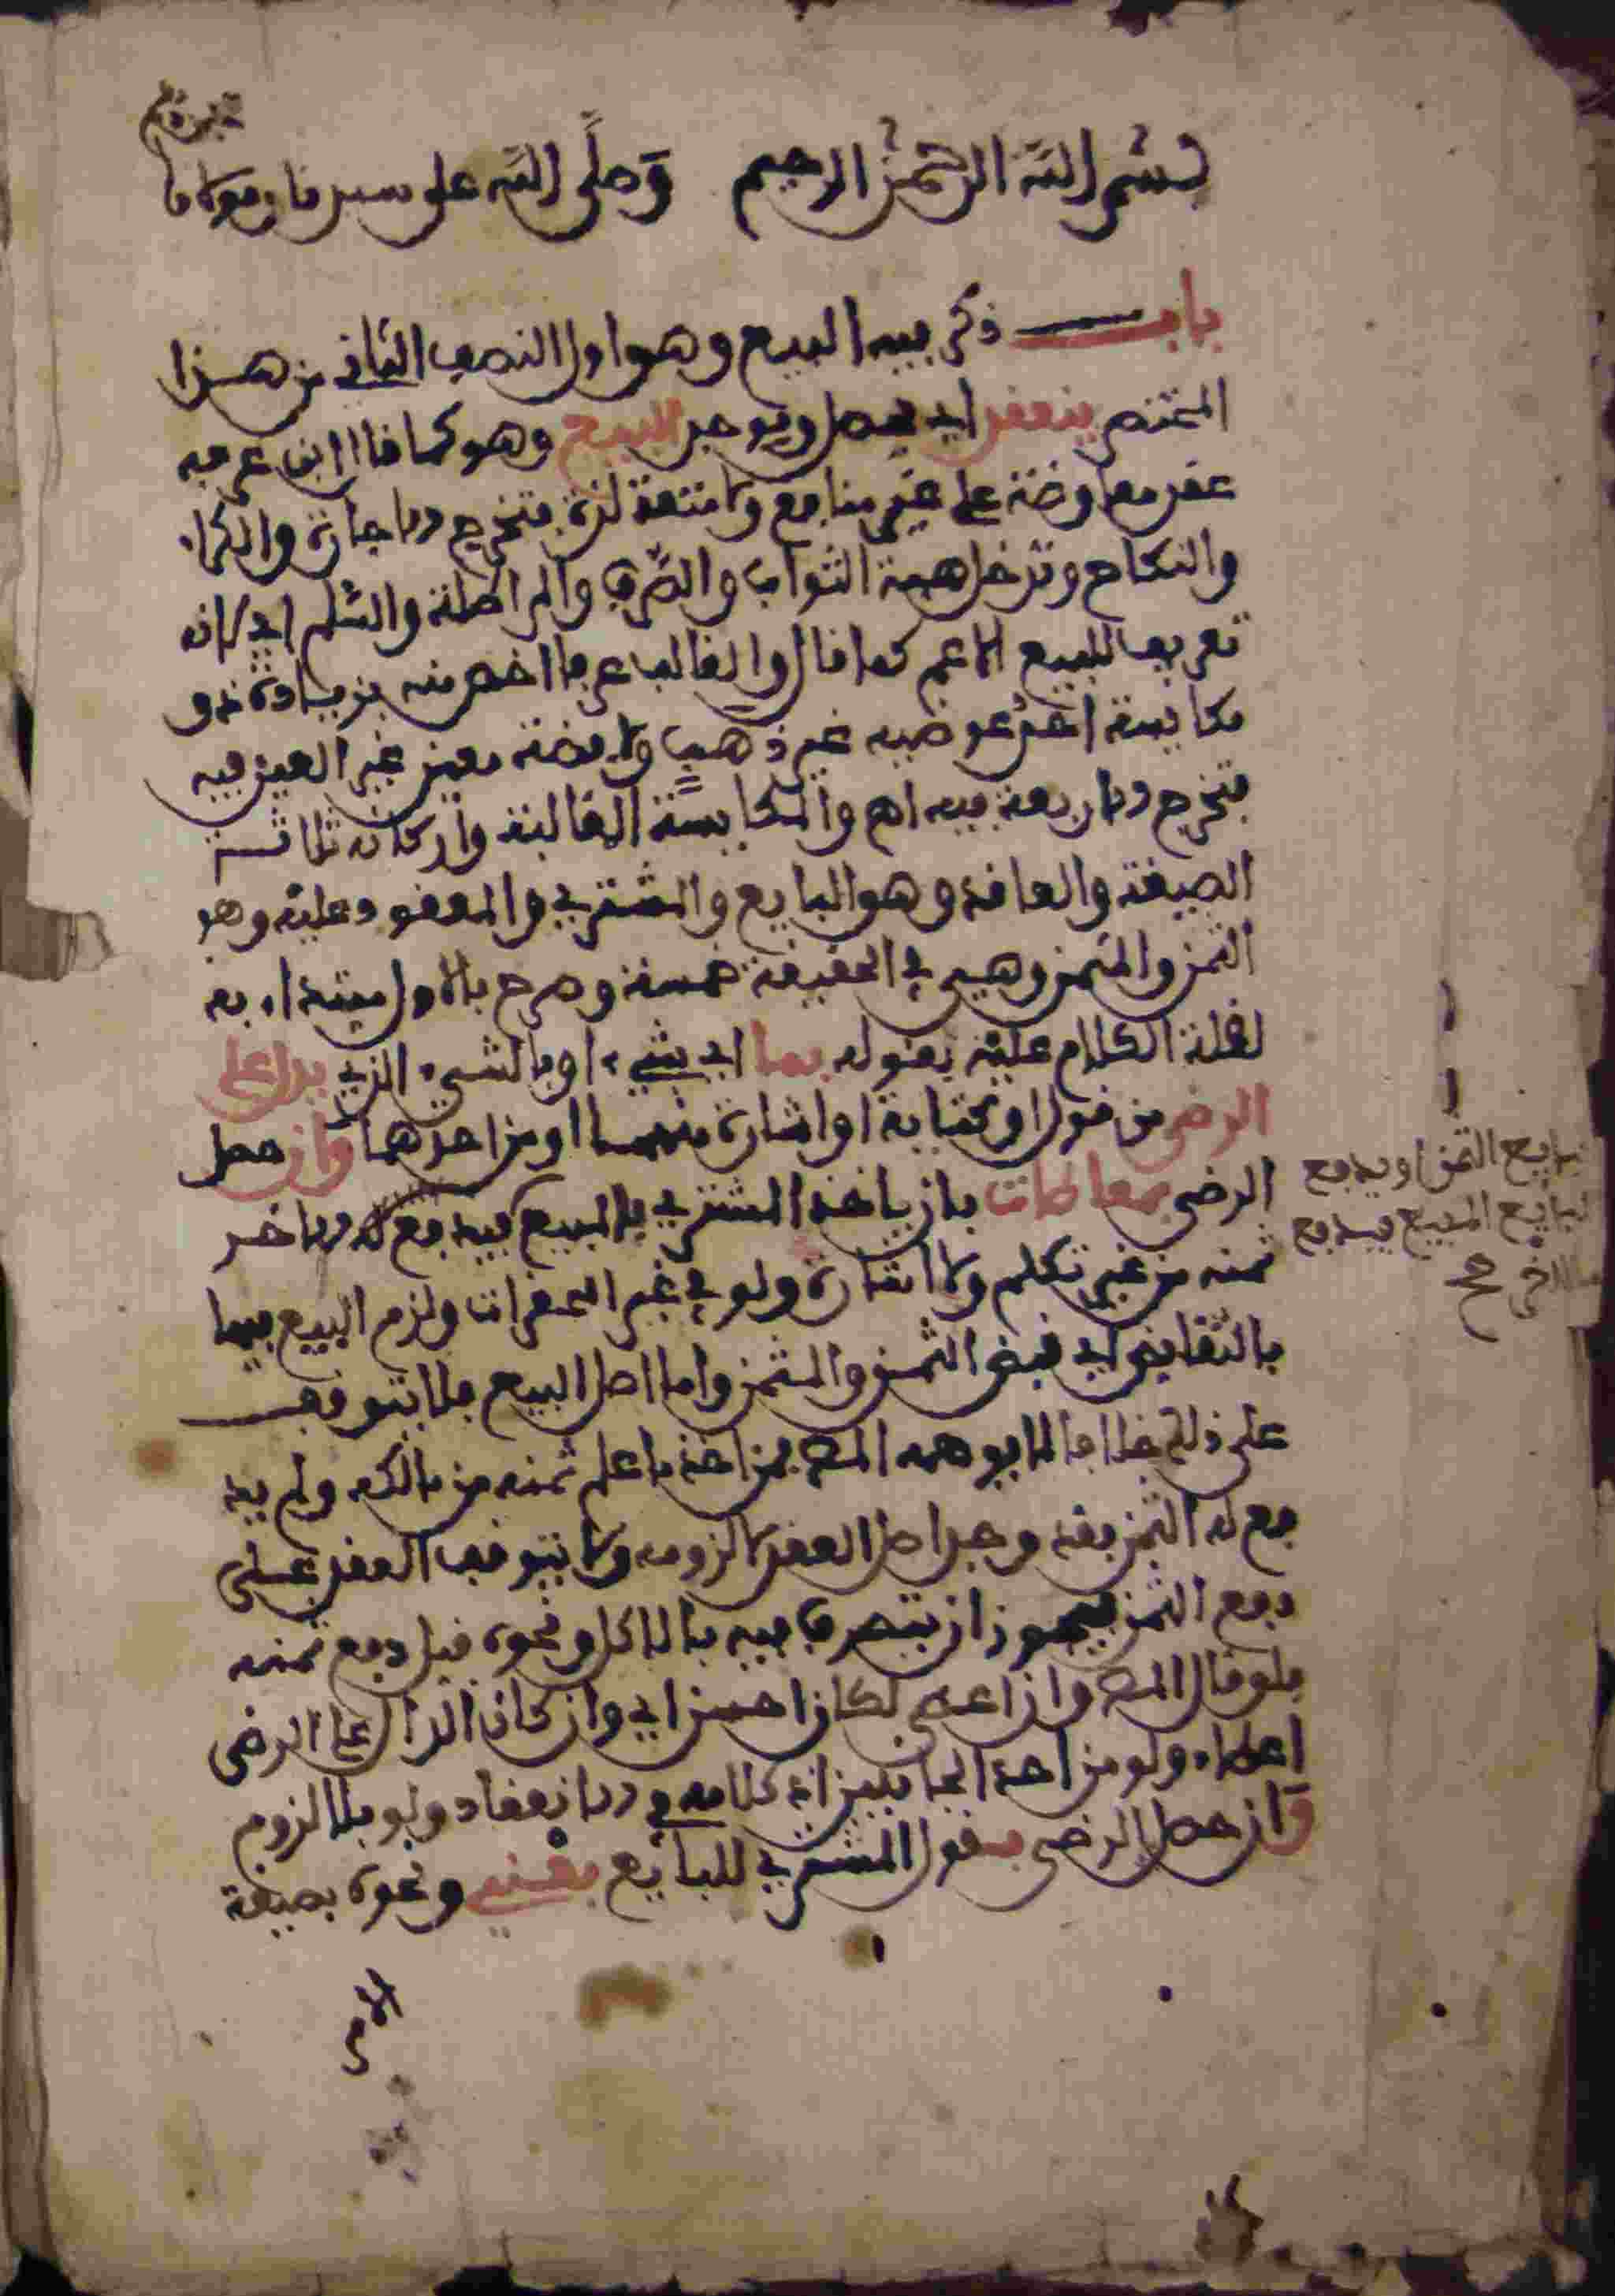 بسم الله الرحمن الرحيم وصلى الله على سيدنا ومولانا
باب ذكر فيه البيع وهو اول النصف الثاني من هذا
المختصر ينعقد اي يحصل ويوجد البيع وهو كما قال ابن عرفة
عقد معاوضة على غير منافع ولا متعة لذة فتخرج الاجارة والكراء
والنكاح وتدخل هبة الثواب والصرف والمراطلة والسلم اي لانه
تعريف للبيع الاعم كما قال والغالب عرفا اخص منه بزيادة ذو
مكايسة احد عوضيه غير ذهب ولا فضة معين غير العين فيه
فتخرج الاربعة فيه اهـ والمكايسة المغالبة واركانه ثلاثة
الصيغة والعاقد وهو البايع والمشتري والمعقود عليه وهو
الثمن والمثمن وهي في الحقيقة خمسة وصرح بالاول مبتدا به
لقلة الكلام عليه بقوله بما اي بشيء او بالشيء الذي يدل على
الرضى من قول او كتابة او اشارة منهما او من احدهما وان حصل
الرضى بمعاطات بان ياخذ المشتري المبيع فيدفع له الاخر
ثمنه من غير تكلم ولا اشارة ولو في غير المحقرات ولزم البيع فيها
بالتقابض اي قبض الثمن والمثمن واما اصل البيع فلا يتوقف
على ذلك خلافا لما يوهمه المص فمن اخذ ما علم ثمنه من مالكه ولم يد
فع له الثمن فقد وجد اصل العقد لا لزومه ولا يتوقف العقد على
دفع الثمن فيجوز ان يتصرف فيه بالاكل ونحوه قبل دفع ثمنه
فلو قال المص وان اعطى لكان احسن اي وان كان الدال على الرضى
اعطاء ولو من احد الجانبين اذ كلامه في الانعقاد ولو بلا لزوم
وان حصل الرضى بقول المشتري للبايع بعني ونحوه بصيغة
الامر
بايع الثمن او يدفع
البايع المبيع فيدفع
الاخر صح